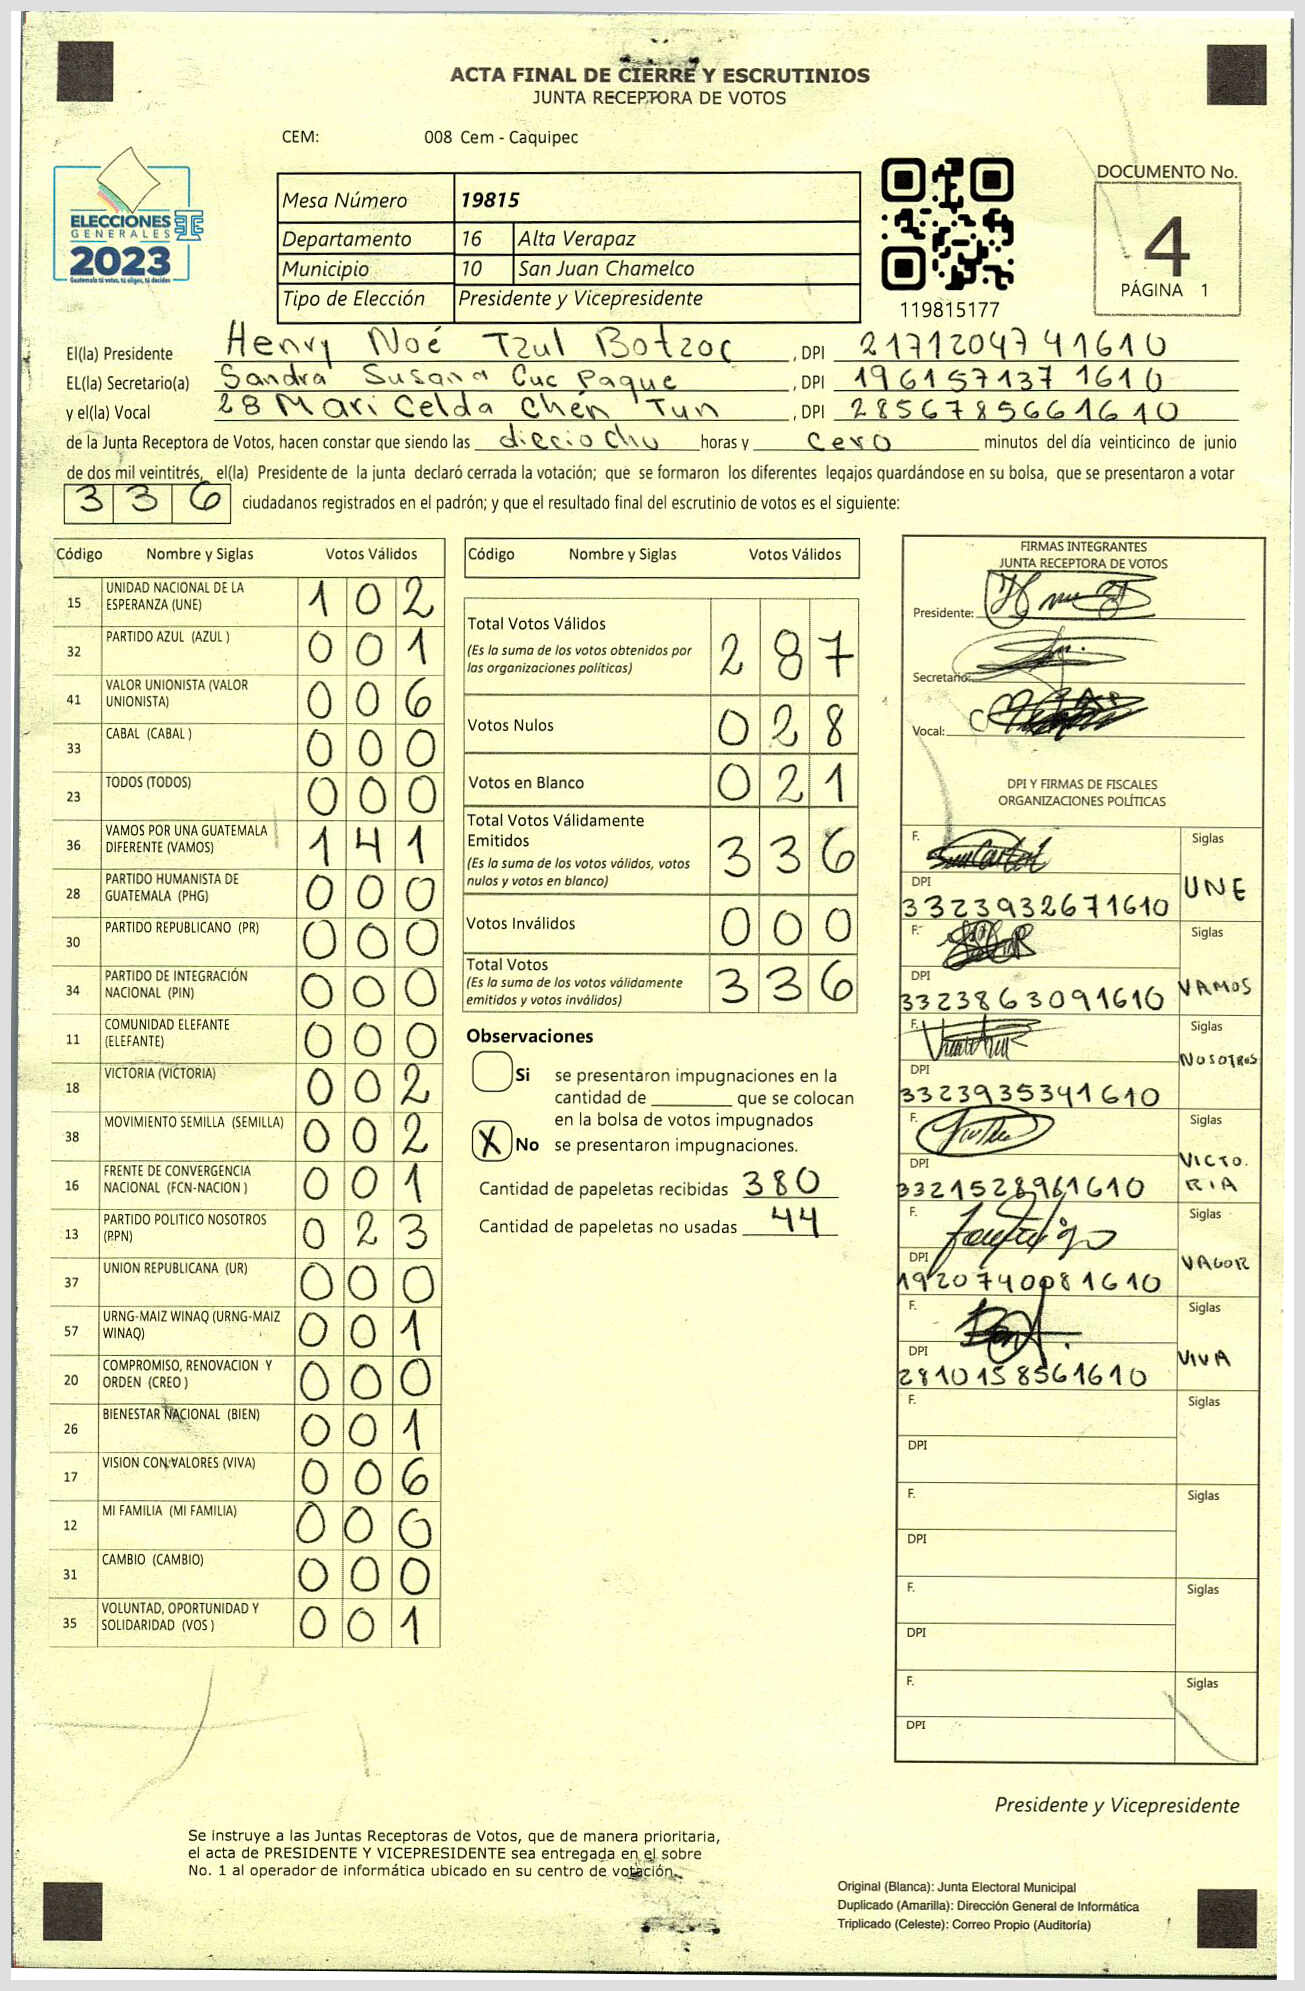 ACTA FINAL DE CIERRE Y ESCRUTINIOS
JUNTA RECEPTORA DE VOTOS
CEM: 008 Cem - Caquipec
ELECCIONES
GENERALES
2023
Guatemala tú votas, tú eliges, tú decides
Mesa Número 19815
Departamento 16 Alta Verapaz
Municipio 10 San Juan Chamelco
Tipo de Elección Presidente y Vicepresidente
119815177
DOCUMENTO No.
4
PÁGINA 1
El(la) Presidente Henry Noé Tzul Botzoc , DPI 2171204741610
EL(la) Secretario(a) Sandra Susana Cuc Paque , DPI 1961571371610
y el(la) Vocal 28 Mari Celda Chén Tun , DPI 2856785661610
de la Junta Receptora de Votos, hacen constar que siendo las dieciocho horas y cero minutos del día veinticinco de junio
de dos mil veintitrés, el(la) Presidente de la junta declaró cerrada la votación; que se formaron los diferentes legajos guardándose en su bolsa, que se presentaron a votar
336 ciudadanos registrados en el padrón; y que el resultado final del escrutinio de votos es el siguiente:
Código Nombre y Siglas Votos Válidos
15 UNIDAD NACIONAL DE LA ESPERANZA (UNE) 102
32 PARTIDO AZUL (AZUL ) 001
41 VALOR UNIONISTA (VALOR UNIONISTA) 006
33 CABAL (CABAL ) 000
23 TODOS (TODOS) 000
36 VAMOS POR UNA GUATEMALA DIFERENTE (VAMOS) 141
28 PARTIDO HUMANISTA DE GUATEMALA (PHG) 000
30 PARTIDO REPUBLICANO (PR) 000
34 PARTIDO DE INTEGRACIÓN NACIONAL (PIN) 000
11 COMUNIDAD ELEFANTE (ELEFANTE) 000
18 VICTORIA (VICTORIA) 002
38 MOVIMIENTO SEMILLA (SEMILLA) 002
16 FRENTE DE CONVERGENCIA NACIONAL (FCN-NACION ) 001
13 PARTIDO POLITICO NOSOTROS (PPN) 023
37 UNION REPUBLICANA (UR) 000
57 URNG-MAIZ WINAQ (URNG-MAIZ WINAQ) 001
20 COMPROMISO, RENOVACION Y ORDEN (CREO ) 000
26 BIENESTAR NACIONAL (BIEN) 001
17 VISION CON VALORES (VIVA) 006
12 MI FAMILIA (MI FAMILIA) 000
31 CAMBIO (CAMBIO) 000
35 VOLUNTAD, OPORTUNIDAD Y SOLIDARIDAD (VOS ) 001
Código Nombre y Siglas Votos Válidos
Total Votos Válidos 287
(Es la suma de los votos obtenidos por
las organizaciones políticas)
Votos Nulos 028
Votos en Blanco 021
Total Votos Válidamente
Emitidos 336
(Es la suma de los votos válidos, votos
nulos y votos en blanco)
Votos Inválidos 000
Total Votos 336
(Es la suma de los votos válidamente
emitidos y votos inválidos)
Observaciones
Si se presentaron impugnaciones en la
cantidad de ________ que se colocan
en la bolsa de votos impugnados
X No se presentaron impugnaciones.
Cantidad de papeletas recibidas 380
Cantidad de papeletas no usadas 44
FIRMAS INTEGRANTES
JUNTA RECEPTORA DE VOTOS
Presidente:
Secretario:
Vocal:
DPI Y FIRMAS DE FISCALES
ORGANIZACIONES POLÍTICAS
F. Siglas
DPI UNE
3323932671610
F. Siglas
DPI VAMOS
3323863091610
F. Siglas
DPI NOSOTROS
3323935341610
F. Siglas
DPI VICTO.
3321528961610 RIA
F. Siglas
DPI VALOR
1920740081610
F. Siglas
DPI VIVA
2810158561610
F. Siglas
DPI
F. Siglas
DPI
F. Siglas
DPI
F. Siglas
DPI
Presidente y Vicepresidente
Se instruye a las Juntas Receptoras de Votos, que de manera prioritaria,
el acta de PRESIDENTE Y VICEPRESIDENTE sea entregada en el sobre
No. 1 al operador de informática ubicado en su centro de votación.
Original (Blanca): Junta Electoral Municipal
Duplicado (Amarilla): Dirección General de Informática
Triplicado (Celeste): Correo Propio (Auditoría)